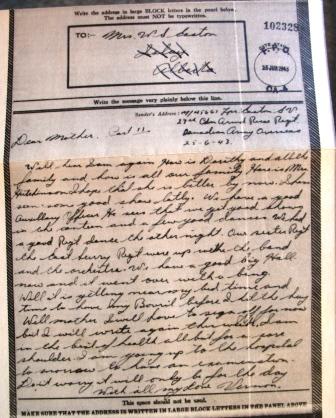 Write the address in large BLOCK letters in the panel below.
The address must NOT be typewritten.
TO:- Mrs. W S Seaton
Alberta
102328
25 JUN 1943
Write the message very plainly below this line.
Sender's Address:
29th Cdn Armd Recce Regt
Canadian Army Overseas
25-6-43.
Dear Mother.
Well here I am again How is Dorothy and all the
family and how is all our family How is Mrs
Hutchinson I hope that she is better by now. I have
seen some good show latly. We have a good
Auxillary Officer He sees that we get good things
in the canteen and a few good dances We had
a good Regt dance the other night. Our sister Regt
the last hurry Regt were up with the band
and the orchestra. We have a good big Hall
now and it went over with a bang.
Will it is getting very near bed time and
time to have my Bovril before I hit the hay
Will mother I will have to sign off for now
but I will write again this week. I am
in the best of health all but for my
shoulder I am going up to the hospital
to morrow to have an examination
Don't worry it will only be for the day
With all my love Vernon.
This space should not be used.
MAKE SURE THAT THE ADDRESS IS WRITTEN IN LARGE BLOCK LETTERS IN THE PANEL ABOVE